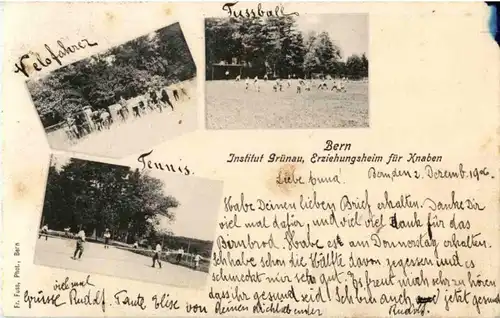 Fussball
Velofahrer
Tennis.
Bern
Institut Grünau, Erziehungsheim für Knaben
Bern, den 2. Dezemb. 1906
Liebe Anna!
Habe Deinen lieben Brief erhalten. Danke Dir
viel mal dafür, und viel viel Dank für das
Birnbrod. Habe es am Donnerstag erhalten.
Ich habe schon die Hälfte davon gegessen und es
schmeckt mir sehr gut. Es freut mich sehr zu hören
dass ihr gesund seid! Ich bin auch jetzt gesund
viel mal
Grüsse Rudolf. Tante Elise von
Deinen
Rudolf.
Fr. Fuss, Phot., Bern